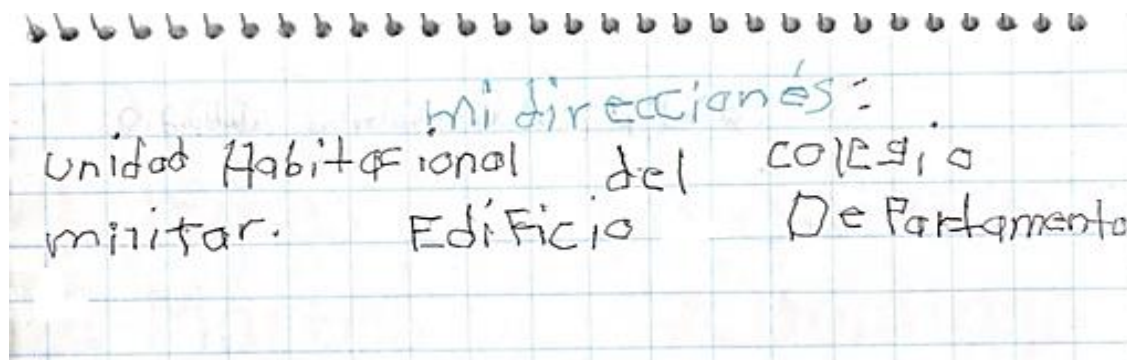 mi direcciónés:
unidad Habitacional del colegio
militar. Edificio Departamento